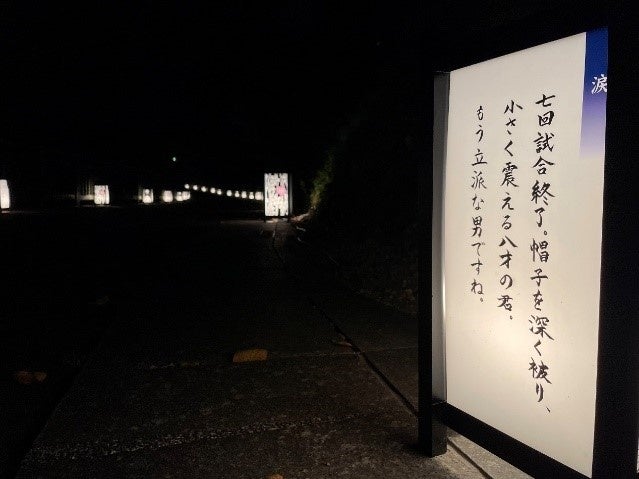 涙
七回試合終了。帽子を深く被り、
小さく震える八才の君。
もう立派な男ですね。